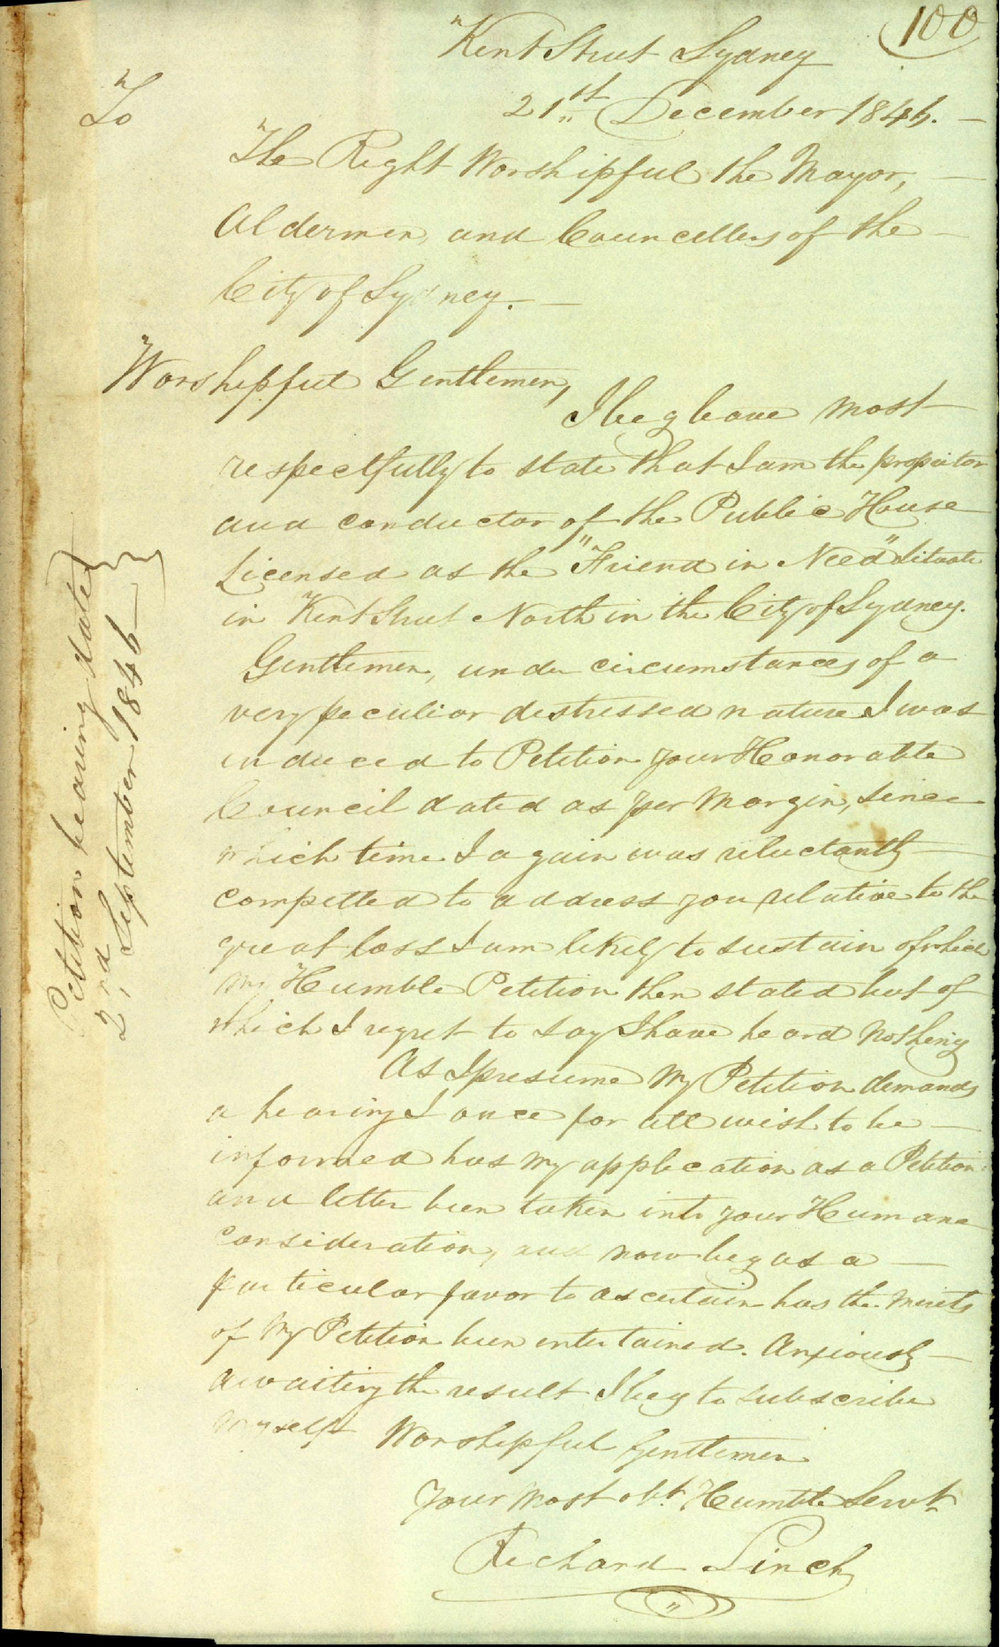 100
Kent Street Sydney
21st December 1846. —
To
The Right Worshipful the Mayor, —
Aldermen, and Councellers of the —
City of Sydney. —
Worshipful Gentlemen,
I beg leave most
respectfully to state that I am the propietor
and conductor of the Public House
Licensed as the "Friend in Need" Situate
in Kent Street North in the City of Sydney.
Gentlemen, under circumstances of a
very peculiar distressed nature I was
induced to Petition your Honorable
Council dated as per Margin, since
which time I again was reluctantly —
compelled to address you relative to the
great loss I am likely to sustain of which
My Humble Petition then stated but of
which I regret to say I have heard Nothing
As I presume My Petition demands
a hearing I once for all wish to be —
informed has my application as a Petition
and letter been taken into your Humane
Consideration, and now beg as a —
particular favor to ascertain has the Merits
of My Petition been entertained. Anxiously —
awaiting the result I beg to subscribe
Myself Worshipful Gentlemen
Your Most obt. Humble Servt.
Richard Linch
Petition bearing date
2nd, September 1846 —